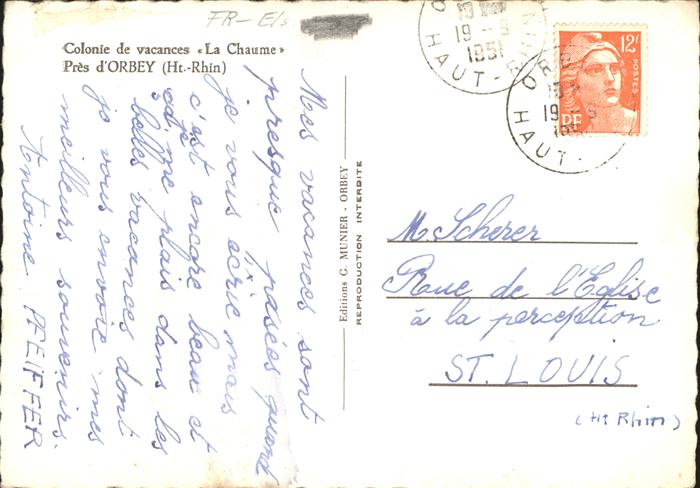 FR-Els
Colonie de vacances «La Chaume»
Près d'ORBEY (Ht.-Rhin)
Mes vacances sont
presque pasées quand
je vous écrie mais
c'est encore beau et
je me plais dans les
belles vacances dont
je vous envoie mes
meilleurs souvenirs.
Antoine PFEIFFER
Editions C. MUNIER - ORBEY
REPRODUCTION INTERDITE
19-9
1951
HAUT-RHIN
12F
POSTES
RF
19-9
HAUT-
M. Scherer
Rue de l'Eglise
à la perception
ST. LOUIS
(Ht Rhin)